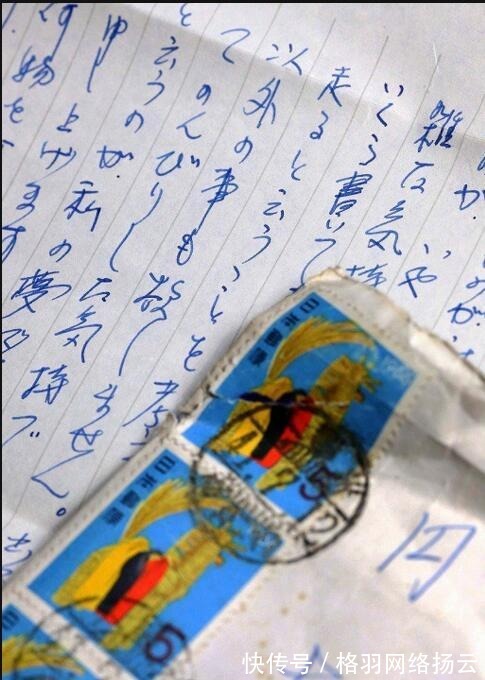 雑な気持
いや
いくら書いて
走ると云うことを考
以外の事も欲しません。
てのんびりした気持で
と云うのが私の夢で
申し上げます
物を
日本郵便
5
日本郵便
5
円
快传号/格羽网络扬云